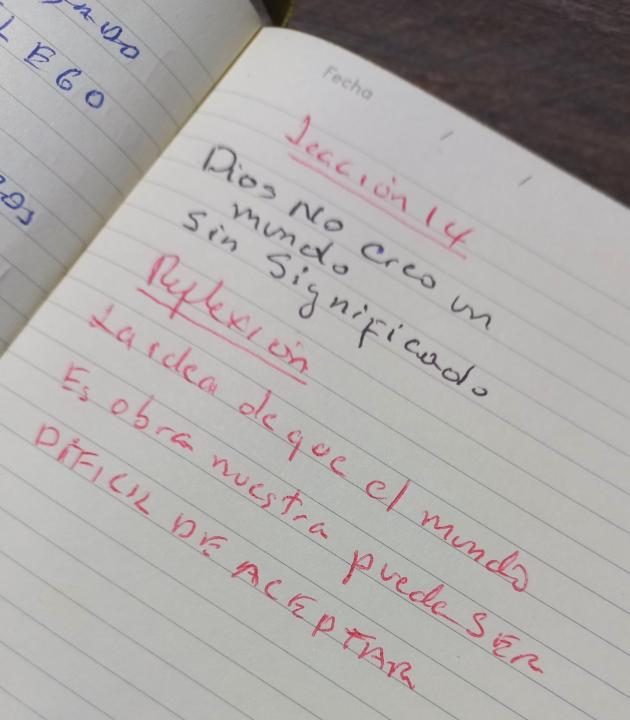 L EGO
Fecha
Lección 14
Dios No creo un
mundo
sin significado
Reflexión
La idea de que el mundo
Es obra nuestra puede SER
DIFICIL DE ACEPTAR